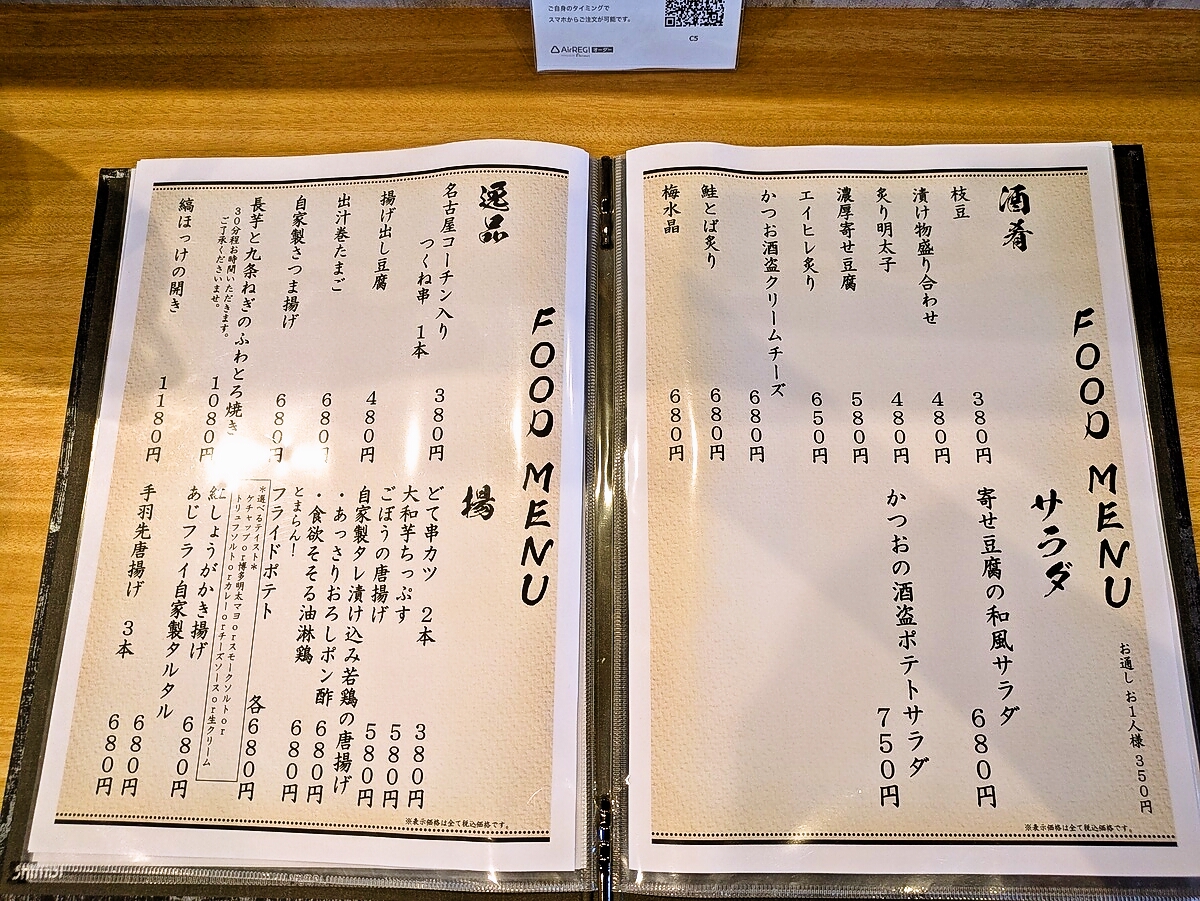 ご自身のタイミングで
スマホからご注文が可能です。
C5
AirREGI オーダー
FOOD MENU
お通し お1人様 350円
酒肴
枝豆 380円
漬け物盛り合わせ 480円
炙り明太子 480円
濃厚寄せ豆腐 580円
エイヒレ炙り 650円
かつお酒盗クリームチーズ 680円
鮭とば炙り 680円
梅水晶 680円
サラダ
寄せ豆腐の和風サラダ 680円
かつおの酒盗ポテトサラダ 750円
※表示価格は全て税込価格です。
FOOD MENU
逸品
名古屋コーチン入り
つくね串 1本 380円
揚げ出し豆腐 480円
出汁巻たまご 680円
自家製さつま揚げ 680円
長芋と九条ねぎのふわとろ焼き 1080円
30分程お時間いただきます。
ご了承くださいませ。
縞ほっけの開き 1180円
揚
どて串カツ 2本 380円
大和芋ちっぷす 580円
ごぼうの唐揚げ 580円
自家製タレ漬け込み若鶏の唐揚げ
・あっさりおろしポン酢 680円
・食欲そそる油淋鶏 680円
とまらん!
フライドポテト 各680円
*選べるテイスト*
ケチャップor博多明太マヨorスモークソルトor
トリュフソルトorカレーorチーズソースor生クリーム
紅しょうがかき揚げ 680円
あじフライ自家製タルタル 680円
手羽先唐揚げ 3本 680円
※表示価格は全て税込価格です。